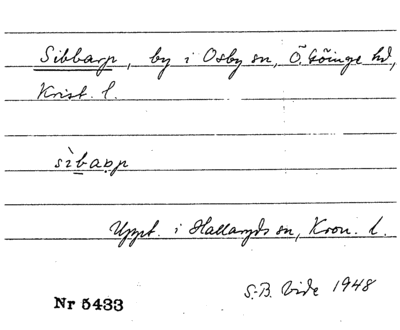 Sibbarp, by i Osby sn, Ö. Göinge hd,
Krist. l.
sìbap̣p
Uppt. i Hallaryds sn, Kron. l.
S.-B. Vide 1948
Nr 5433